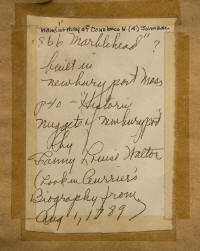 Handwriting of Constance W. (A)
"866 Marblehead" ?
built in
newburyport Mass
p40 - "Historic
nuggets of newburyport"
By
Fanny Louis Walton
(Look in Currier's
Biography from
Aug 1, 1789)